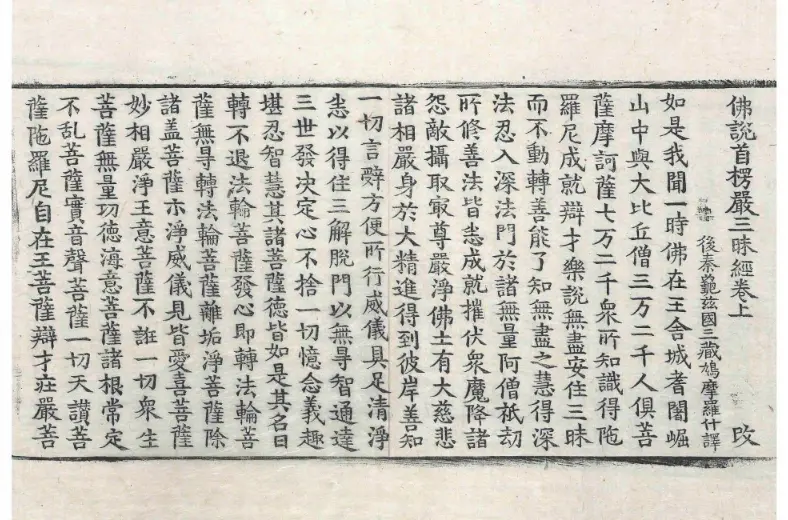 佛說首楞嚴三昧經卷上 改
後秦龜茲國三藏鳩摩羅什譯
如是我聞一時佛在王舍城耆闍崛
山中與大比丘僧三万二千人俱菩
薩摩訶薩七万二千衆所知識得陁
羅尼成就辯才樂說無盡安住三昧
而不動轉善能了知無盡之慧得深
法忍入深法門於諸無量阿僧祇劫
所修善法皆悉成就摧伏衆魔降諸
怨敵攝取㝡尊嚴淨佛土有大慈悲
諸相嚴身於大精進得到彼岸善知
一切言辭方便所行威儀具足清淨
悉以得住三解脫門以無㝵智通達
三世發决定心不捨一切憶念義趣
堪忍智慧其諸菩薩德皆如是其名曰
轉不退法輪菩薩發心即轉法輪菩
薩無㝵轉法輪菩薩離垢淨菩薩除
諸盖菩薩示淨威儀見皆愛喜菩薩
妙相嚴淨王意菩薩不誑一切衆生
菩薩無量功德海意菩薩諸根常定
不乱菩薩實音聲菩薩一切天讃菩
薩陁羅尼自在王菩薩辯才莊嚴菩